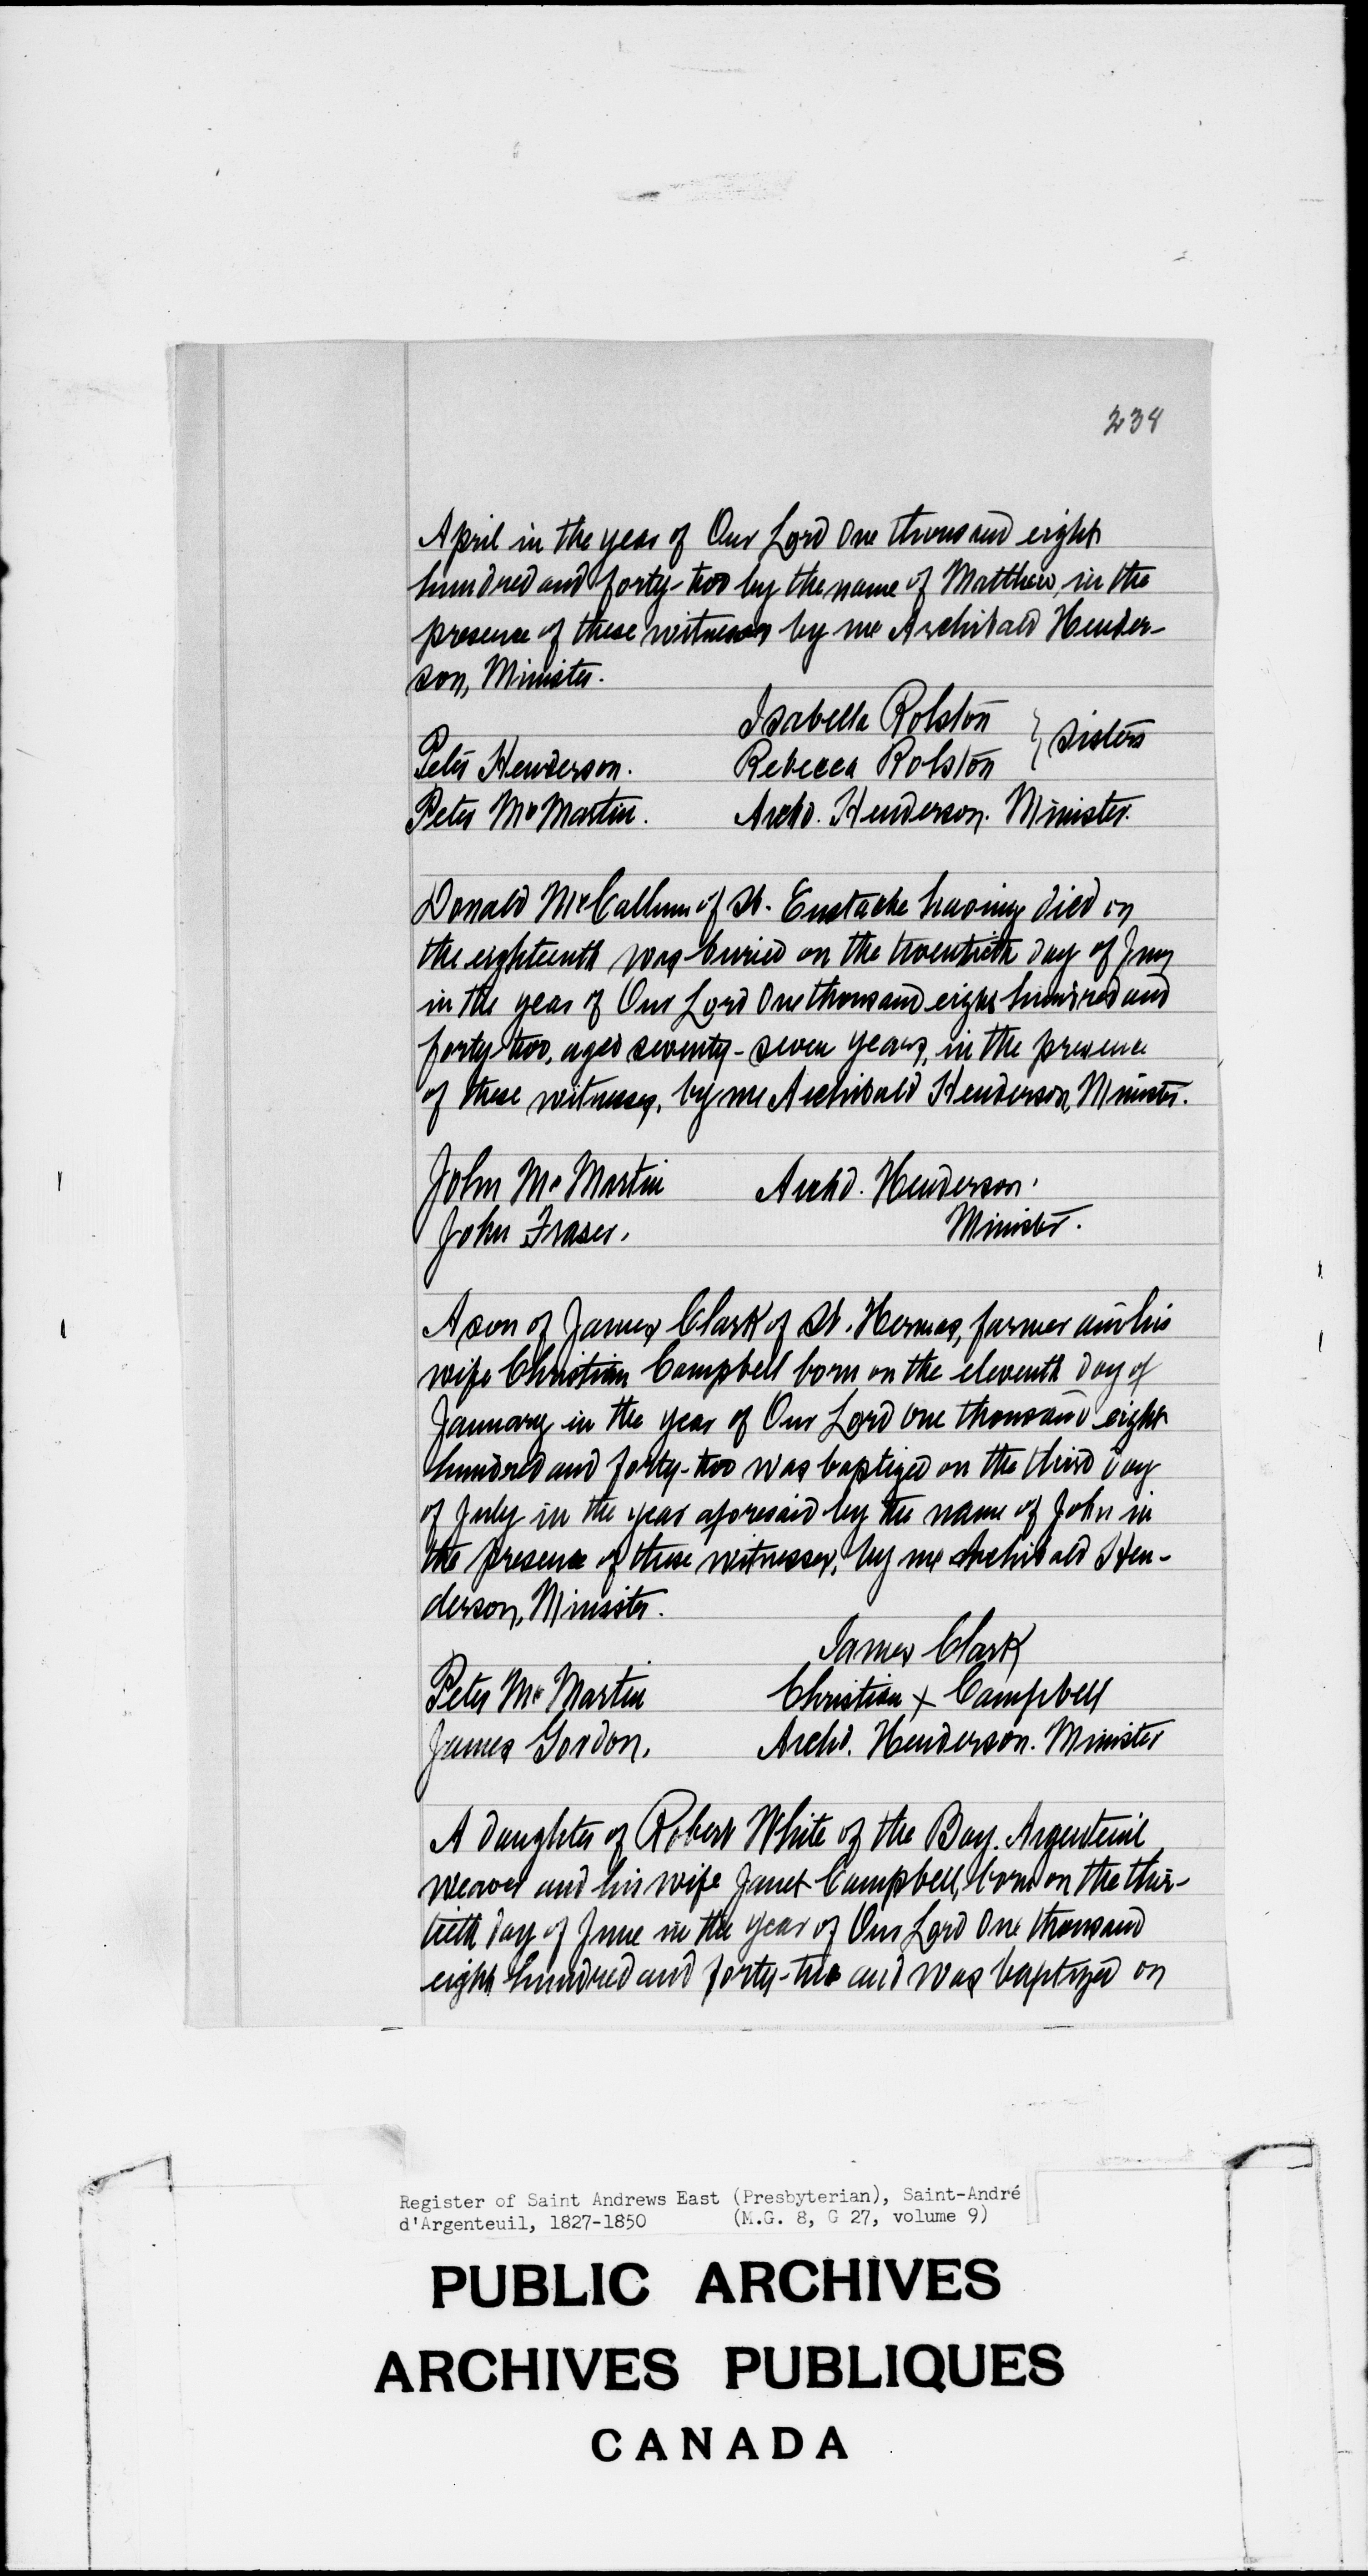 238
April in the year of Our Lord One thousand eight
hundred and forty-two by the name of Matthew, in the
presence of these witnesses by me Archibald Hender-
son, Minister.
Isabella Rolston
Rebecca Rolston } sisters
Peter Henderson.
Peter McMartin. Archd. Henderson. Minister.
Donald McCallum of St. Eustache having died on
the eighteenth was buried on the twentieth day of June
in the year of Our Lord One thousand eight hundred and
forty-two, aged seventy-seven years, in the presence
of these witnesses, by me Archibald Henderson, Minister.
John McMartin Archd. Henderson.
John Fraser. Minister.
A son of James Clark of St. Hermas, farmer and his
wife Christian Campbell born on the eleventh day of
January in the year of Our Lord one thousand eight
hundred and forty-two was baptized on the third day
of July in the year aforesaid by the name of John in
the presence of these witnesses, by me Archibald Hen-
derson, Minister.
James Clark
Peter McMartin Christian x Campbell
James Gordon. Archd. Henderson. Minister
A daughter of Robert White of the Bay. Argenteuil
weaver and his wife Janet Campbell, born on the thir-
tieth day of June in the year of Our Lord One thousand
eight hundred and forty-two and was baptized on
Register of Saint Andrews East (Presbyterian), Saint-André
d'Argenteuil, 1827-1850 (M.G. 8, G 27, volume 9)
PUBLIC ARCHIVES
ARCHIVES PUBLIQUES
CANADA